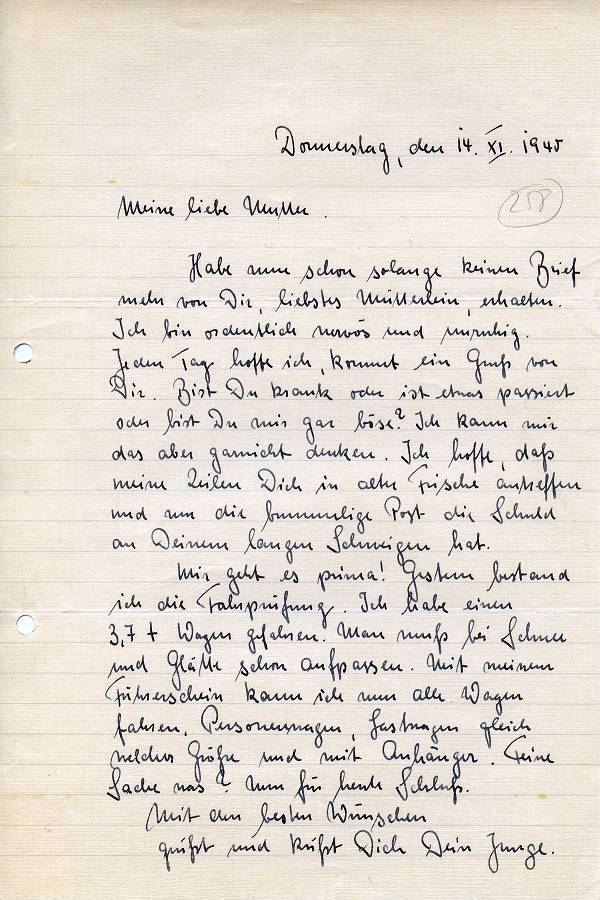 Donnerstag, den 14. XI. 1940
Meine liebe Mutter.
258
Habe nun schon solange keinen Brief
mehr von Dir, liebstes Mütterlein, erhalten.
Ich bin ordentlich nervös und unruhig.
Jeden Tag hoffe ich, kommt ein Gruß von
Dir. Bist Du krank oder ist etwas passiert
oder bist Du mir gar böse? Ich kann mir
das aber garnicht denken. Ich hoffe, daß
meine Zeilen Dich in alter Frische antreffen
und nur die bummelige Post die Schuld
an Deinem langen Schweigen hat.
Mir geht es prima! Gestern bestand
ich die Fahrprüfung. Ich habe einen
3,7 t Wagen gefahren. Man muß bei Schnee
und Glätte schon aufpassen. Mit meinem
Führerschein kann ich nun alle Wagen
fahren. Personenwagen, Lastwagen gleich
welcher Größe und mit Anhänger. Feine
Sache was? Nun für heute Schluß.
Mit den besten Wünschen
grüßt und küßt Dich Dein Junge.